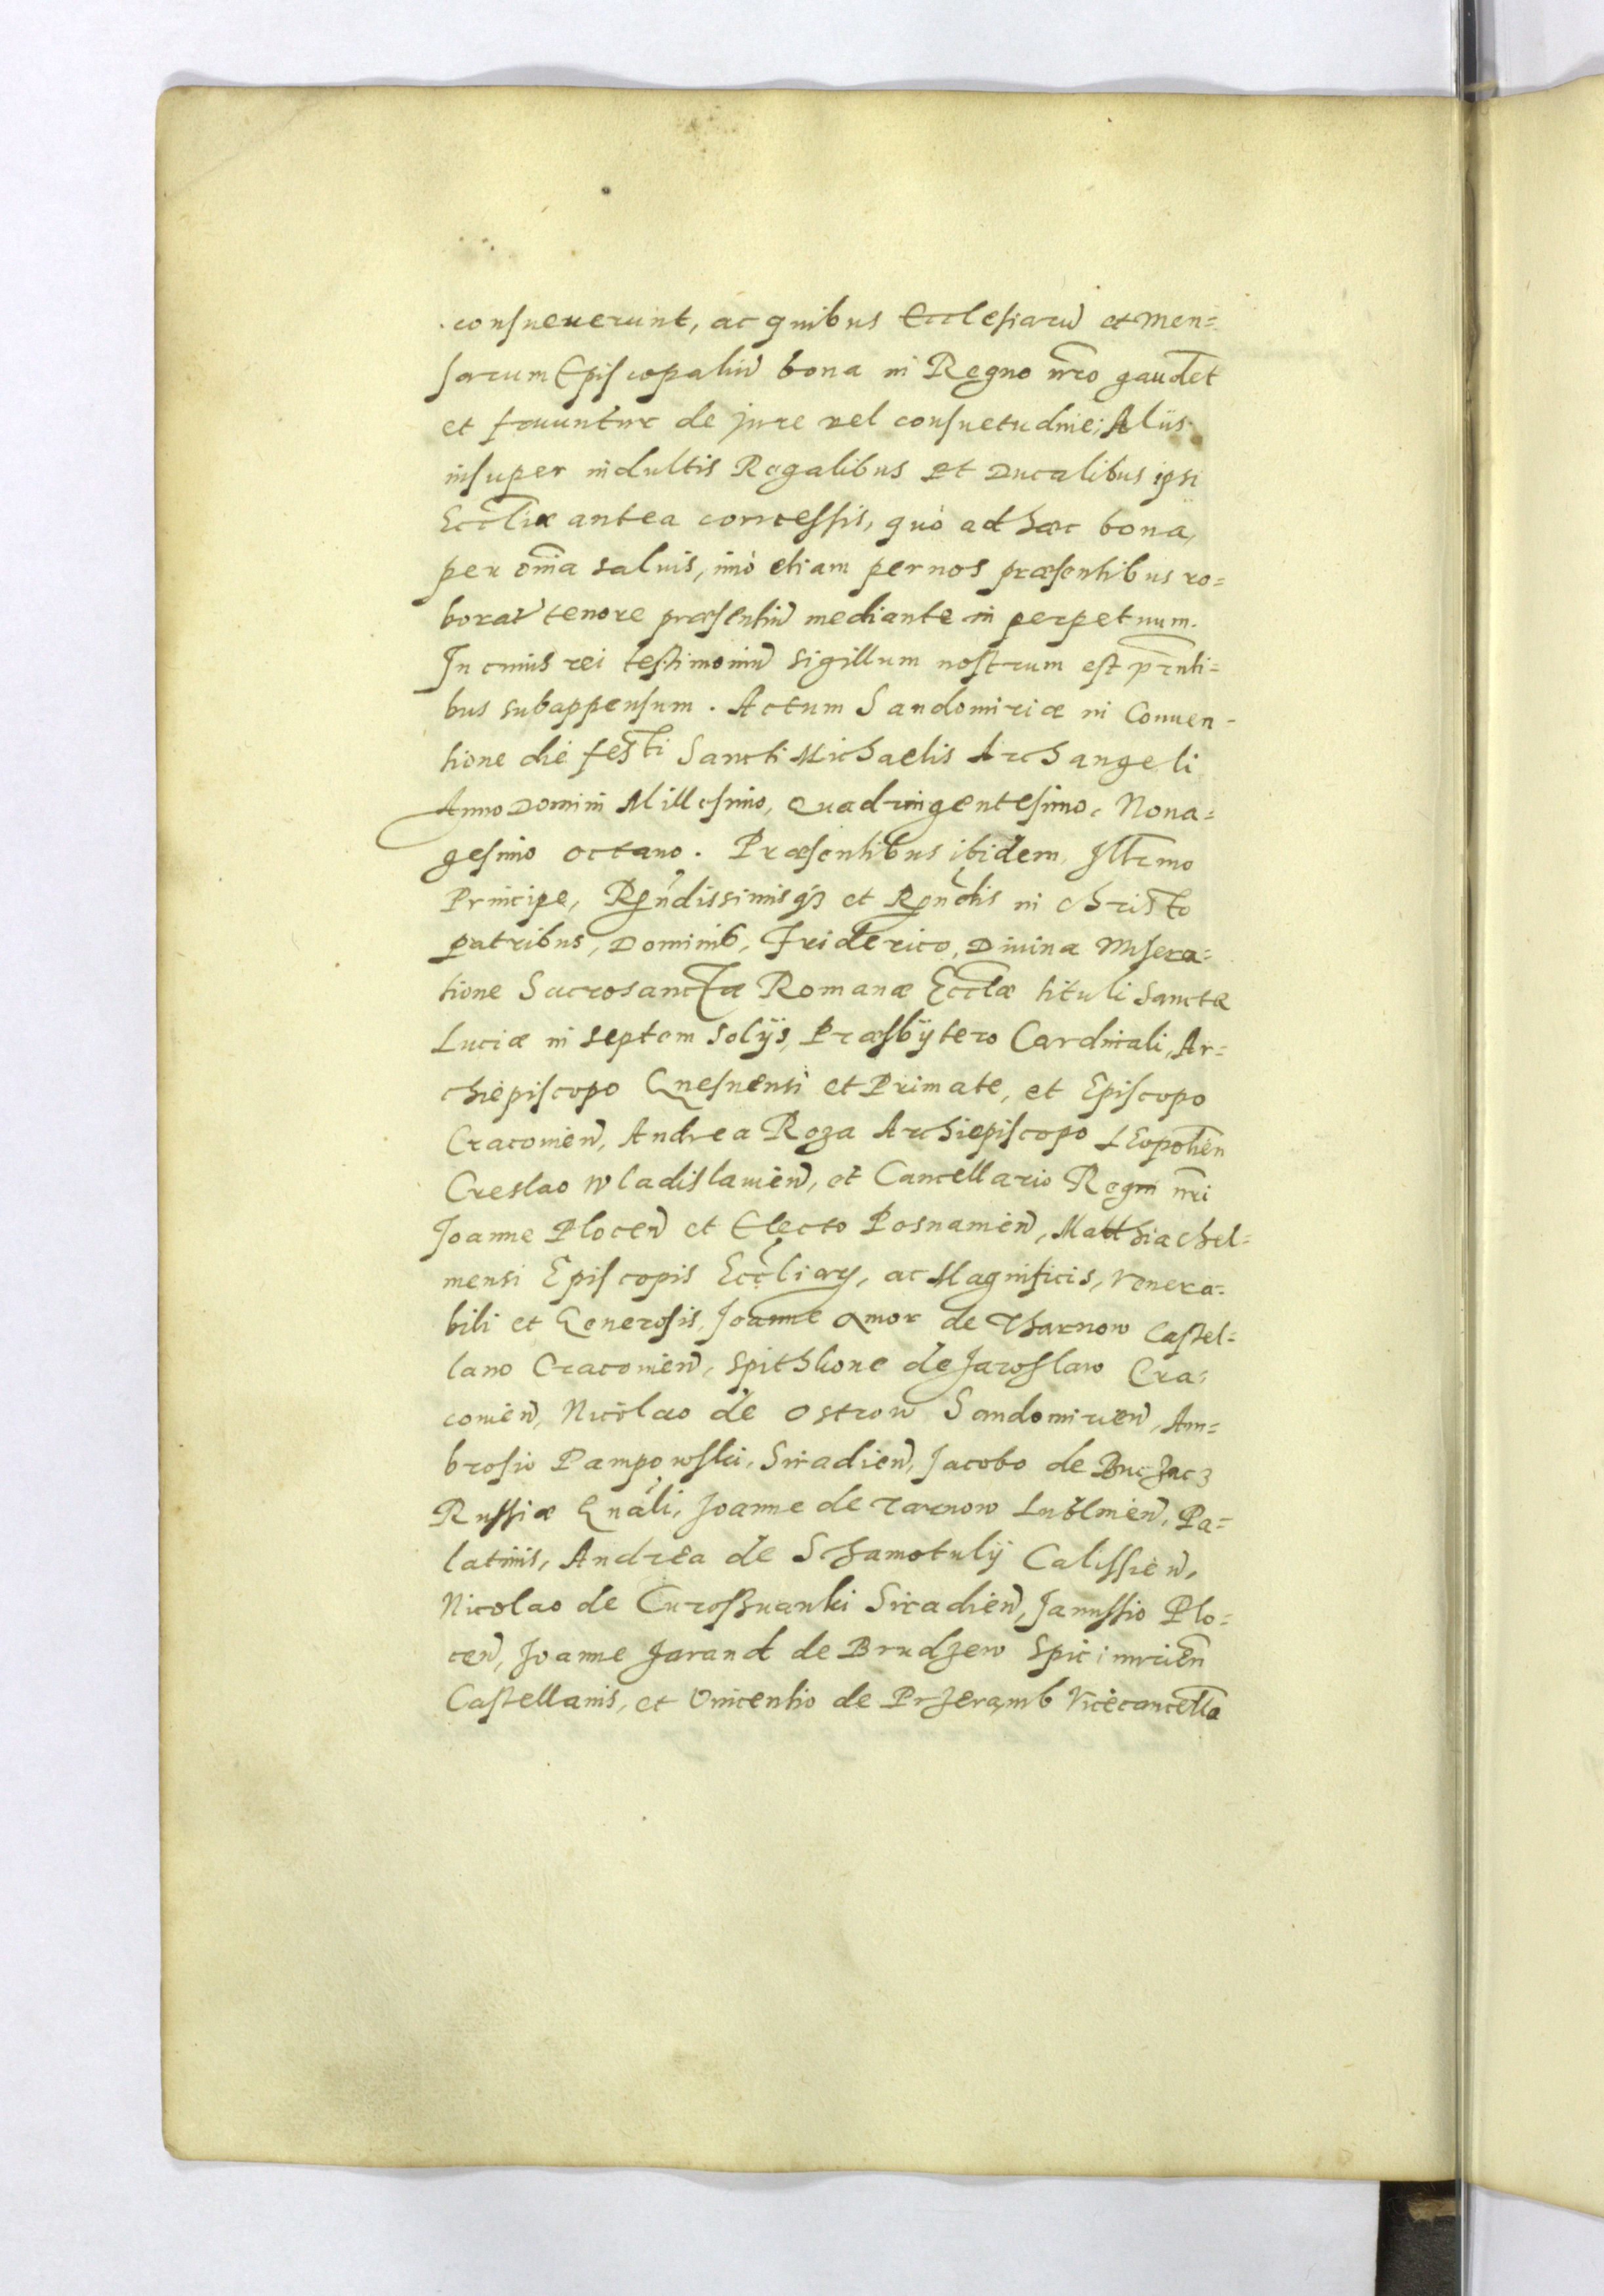 consueuerunt, ac quibus Ecclesiarũ et Men=
sarum Episcopaliũ bona in Regno nr̃o gaudẽt
et fruuntur de jure vel consuetudine; Aliis
insuper indultis Regalibus et Ducalibus ipsi
Eccl̃iæ antea concessis, quò ad hæc bona,
per om̃ia saluis, imò etiam per nos præsentibus ro=
borat̃ tenore præsentiũ mediante in perpetuum.
In cuius rei testimoniũ Sigillum nostrum est pr̃nti=
bus subappensum. Actum Sandomiriæ in Conuen=
tione die festi Sancti Michaelis Archangeli
Anno Domini Millesimo, Quadringentesimo, Nona=
gesimo octauo. Præsentibus ibidem, Ill̃rmo
Principe, Rñdissimisq3 et Rñdis in Christo
patribus, Dominis, Friderico, Diuina Misera=
tione Sacrosanctæ Romanæ Eccl̃æ tituli Sanctæ
Luciæ in septem Solijs, Præsbÿtero Cardinali, Ar=
chiepiscopo Gnesnensi et Primate, et Episcopo
Cracouieñ, Andrea Roza Archiepiscopo Leopolieñ
Creslao Wladislauieñ, et Cancellario Regni nr̃i
Joanne Ploceñ et Electo Posnanieñ, Matthia Chel=
mensi Episcopis Eccl̃iarũ, ac Magnificis, Venera=
bili et Generosis, Joanne Amor de Tharnow Castel=
lano Cracouieñ, Spithkone de Jaroslaw Cra=
couieñ, Nicolao de Ostrow Sandomirieñ, Am=
brosio Pampowski, Siradieñ, Jacobo de Buczacz
Russiæ Gnãli, Joanne de Tarnow Lublinieñ, Pa=
latinis, Andrea de Schamotulÿ Calissieñ,
Nicolao de Curoßuanki Siradieñ, Janussio Plo=
ceñ, Joanne Jarand de Brudzew Spicimirieñ
Castellanis, et Vincentio de Przeramb Vicecancella